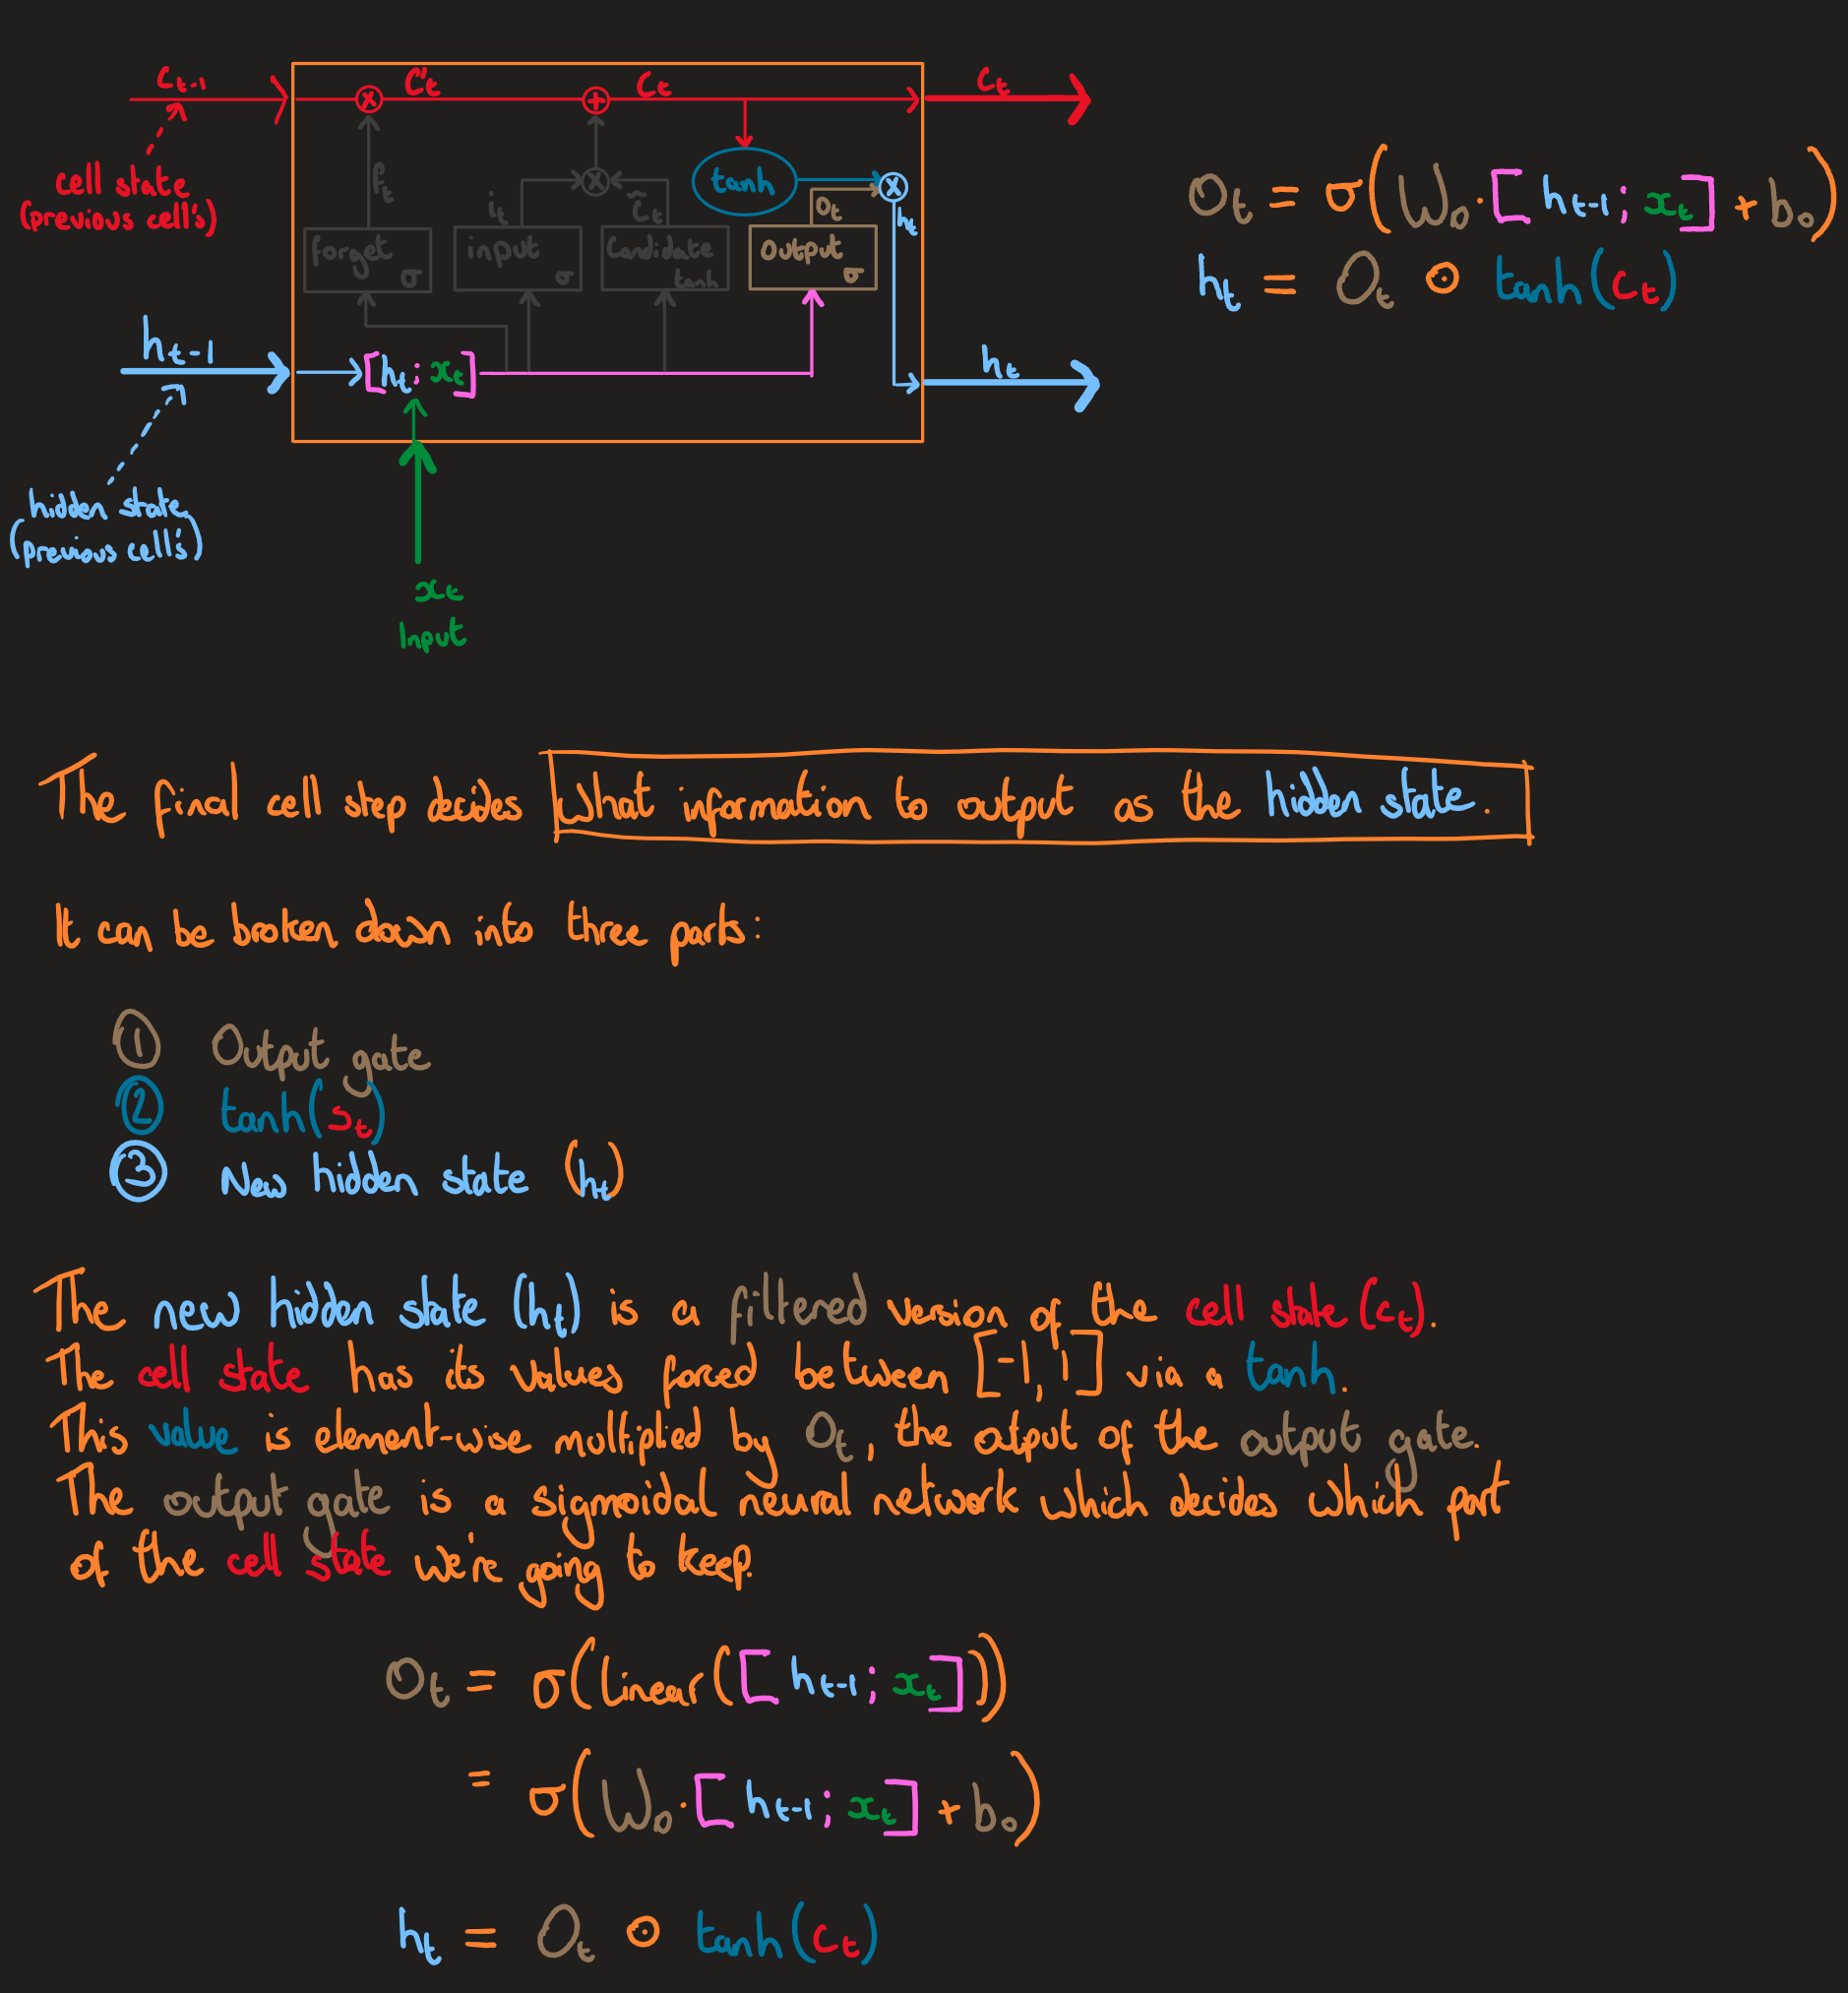 C_{t-1}
C'_t
C_t
C_t
cell state
(previous cell's)
f_t
i_t
C̃_t
tanh
o_t
h_t
forget σ
input σ
Candidate tanh
Output σ
O_t = σ(W_o · [h_{t-1}; x_t] + b_o)
h_t = O_t ⊙ tanh(C_t)
h_{t-1}
[h_t; x_t]
h_t
hidden state
(previous cell's)
x_t
Input
The final cell step decides what information to output as the hidden state.
It can be broken down into three parts:
① Output gate
② tanh(s_t)
③ New hidden state (h_t)
The new hidden state (h_t) is a filtered version of the cell state (c_t).
The cell state has its values forced between [-1, 1] via a tanh.
This value is element-wise multiplied by O_t, the output of the output gate.
The output gate is a sigmoidal neural network which decides which part
of the cell state we're going to keep.
O_t = σ(Linear([h_{t-1}; x_t]))
= σ(W_o · [h_{t-1}; x_t] + b_o)
h_t = O_t ⊙ tanh(C_t)